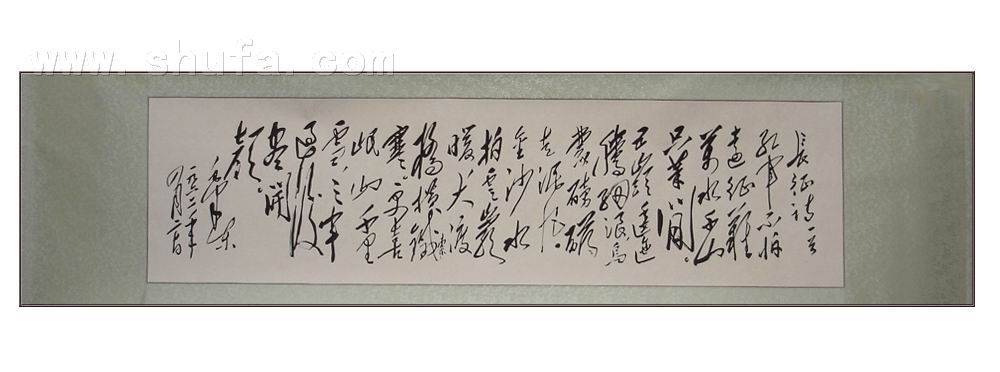 www.shufa.com
長征詩一首
紅軍不怕
遠征難
萬水千山
只等閒。
五嶺逶迤
騰細浪烏
蒙磅礴
走泥丸。
金沙水
拍雲巖
暖大渡
橋橫鐵索
寒。更喜
岷山千里
雪三軍
過後
盡開
顏。
毛澤東
一九六二年
四月二十日